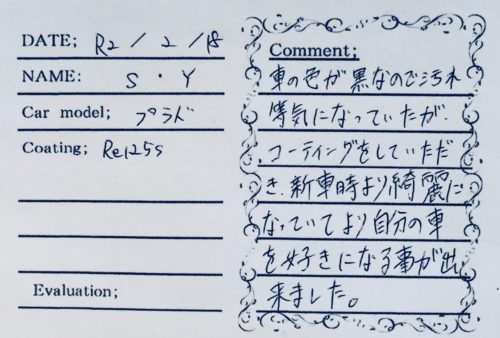 DATE; R2 / 2 / 18
NAME: S・Y
Car model; プラド
Coating; Re125s
Evaluation;
Comment;
車の色が黒なので汚れ
等気になっていたが、
コーティングをしていただ
き、新車時より綺麗に
なっていてより自分の車
を好きになる事が出
来ました。